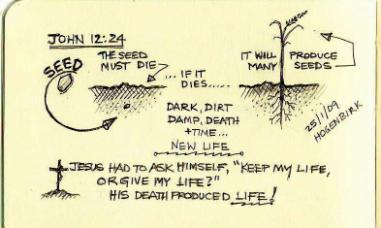 JOHN 12:24
SEED
THE SEED
MUST DIE
... IF IT
DIES.....
IT WILL PRODUCE
MANY SEEDS
DARK, DIRT
DAMP, DEATH
+TIME...
NEW LIFE
25/1/09
HOGENBIRK
JESUS HAD TO ASK HIMSELF, "KEEP MY LIFE,
OR GIVE MY LIFE?"
HIS DEATH PRODUCED LIFE!